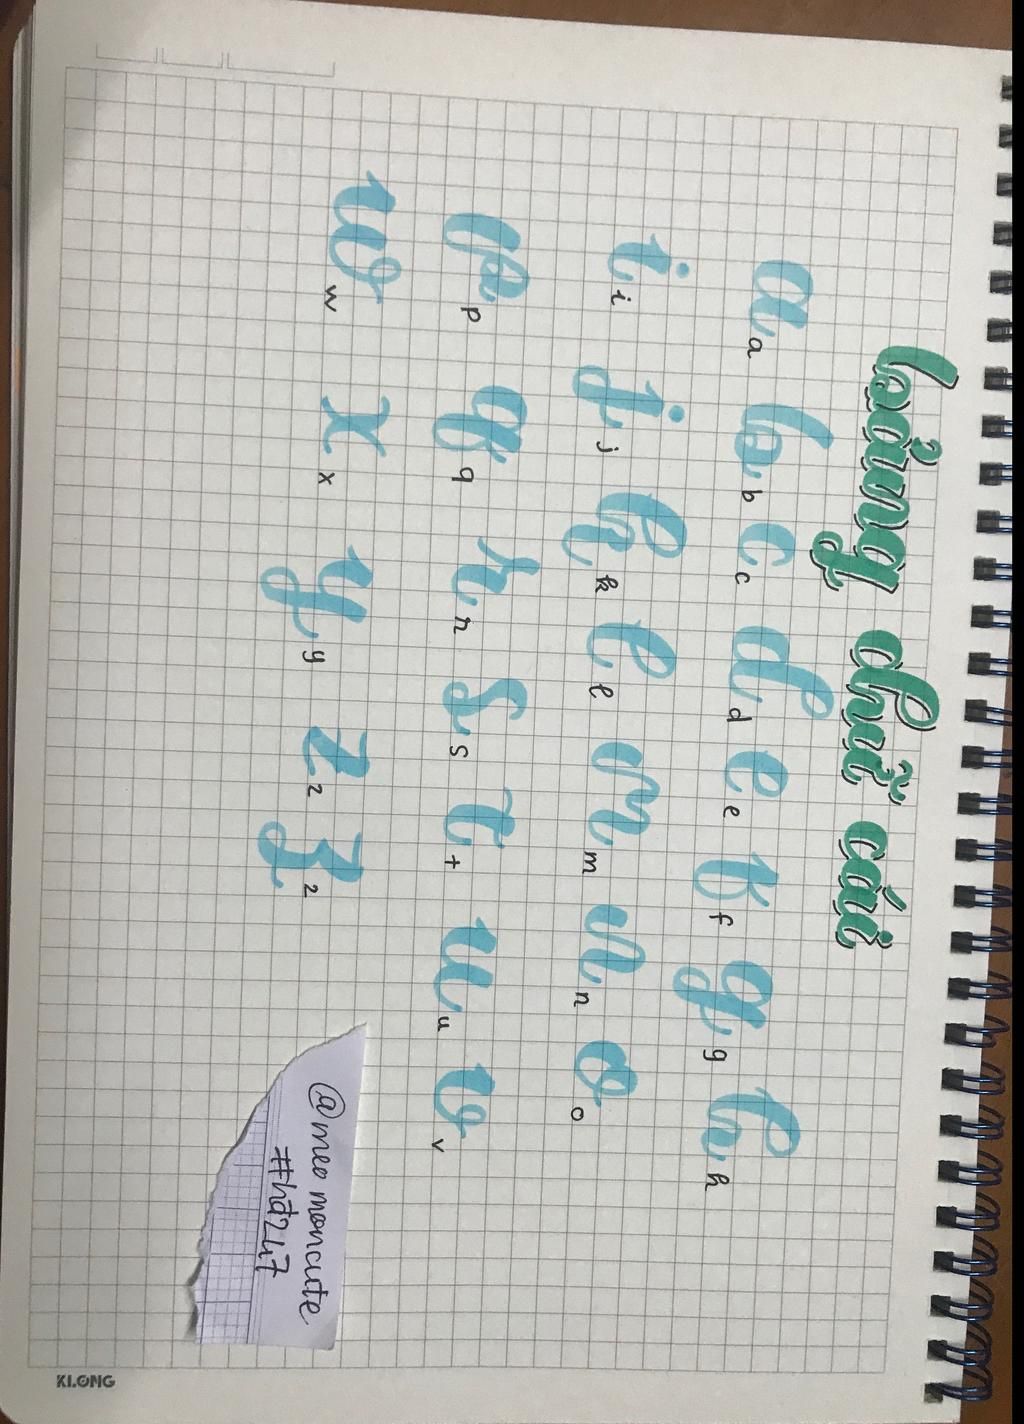 bảng chữ cái
a a b b c c d d e e f f g g h h
i i j j k k l l m m n n o o
p p q q r r s s t t u u v v
w w x x y y z z z z
@meo moncute
#hd247
KLONG